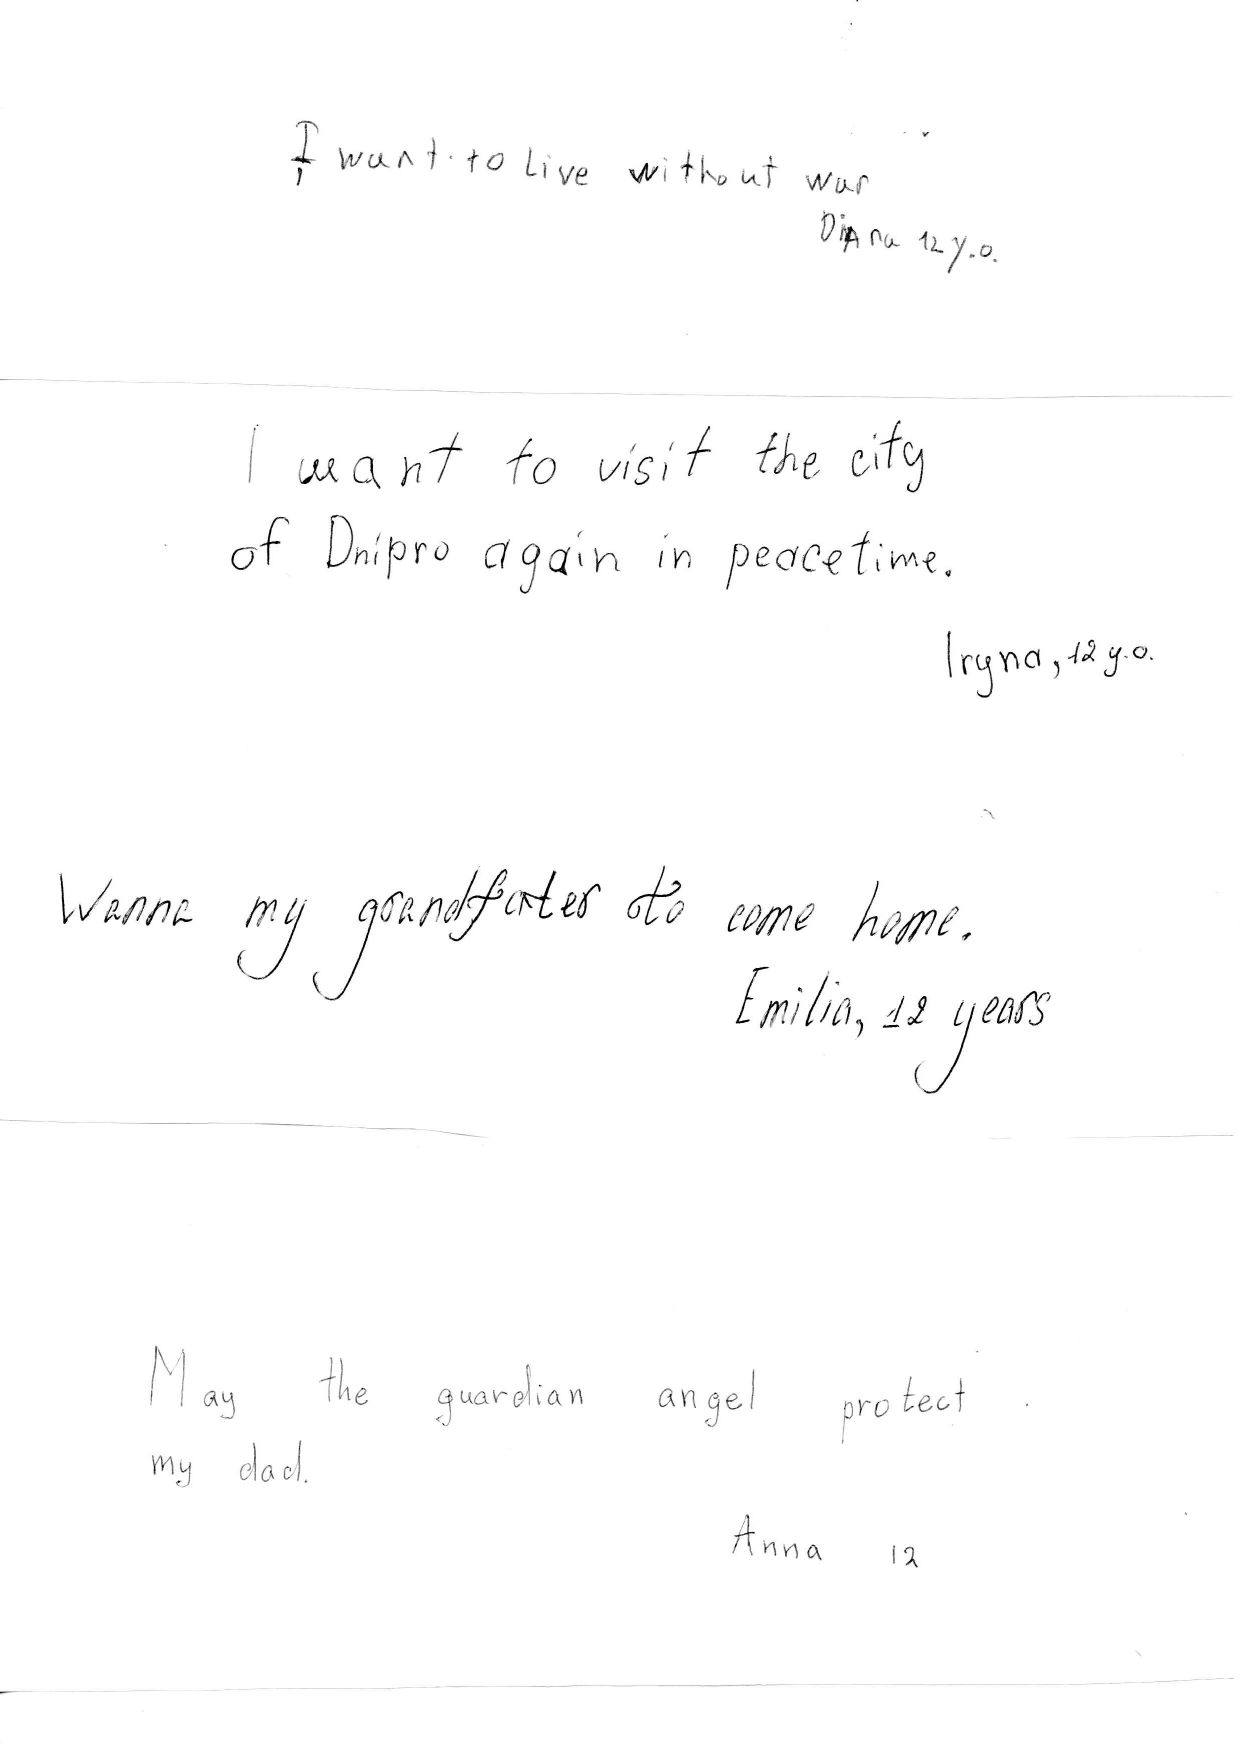 I want to live without war
Diana 12 y.o.
I want to visit the city
of Dnipro again in peacetime.
Iryna, 12 y.o.
Wanna my grandfater to come home.
Emilia, 12 years
May the guardian angel protect
my dad.
Anna 12